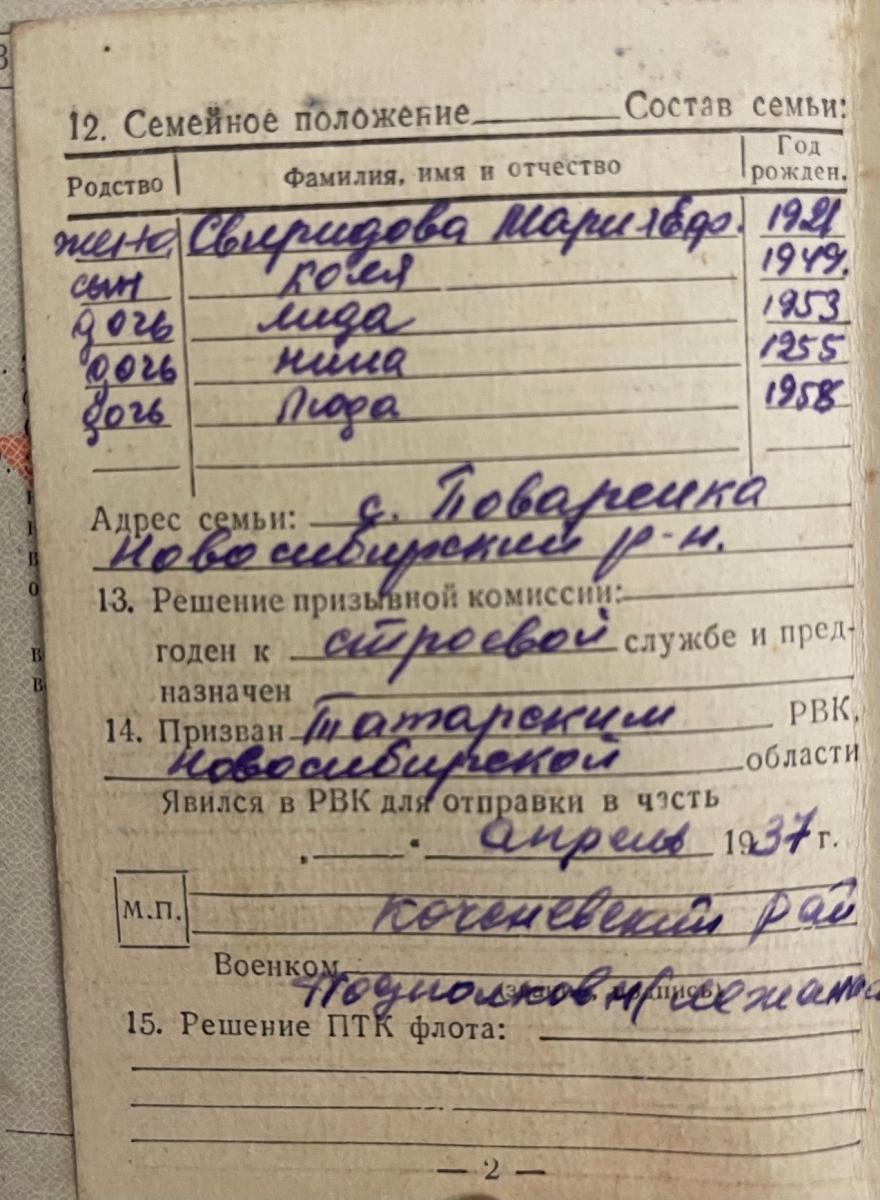 12. Семейное положение Состав семьи:
Родство Фамилия, имя и отчество Год рожден.
жена Свиридова Мария Еф. 1921
сын Коля 1949.
дочь Лида 1953
дочь Нина 1255
дочь Люда 1958
Адрес семьи: с. Поваренка
Новосибирский р-н.
13. Решение призывной комиссии:
годен к строевой службе и пред-
назначен
14. Призван Татарским РВК,
Новосибирской области
Явился в РВК для отправки в часть
апрель 1937 г.
М.П. Коченевский рай
Военком
Подполковн
15. Решение ПТК флота:
— 2 —